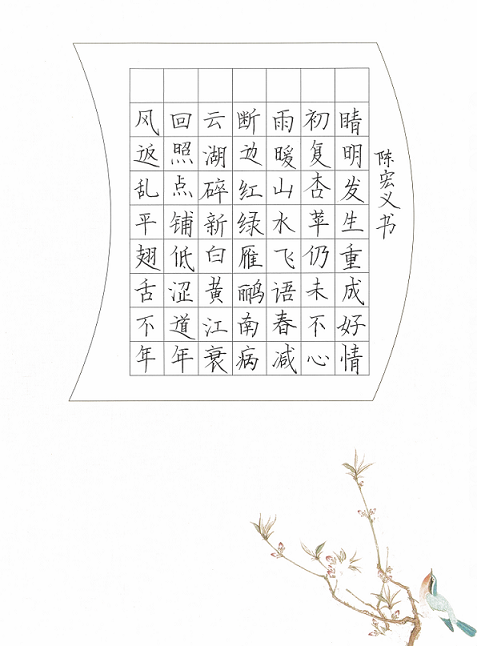 风回云断雨初晴
返照湖边暖复明
乱点碎红山杏发
平铺新绿水苹生
翅低白雁飞仍重
舌涩黄鹂语未成
不道江南春不好
年年衰病减心情
陈宏义书